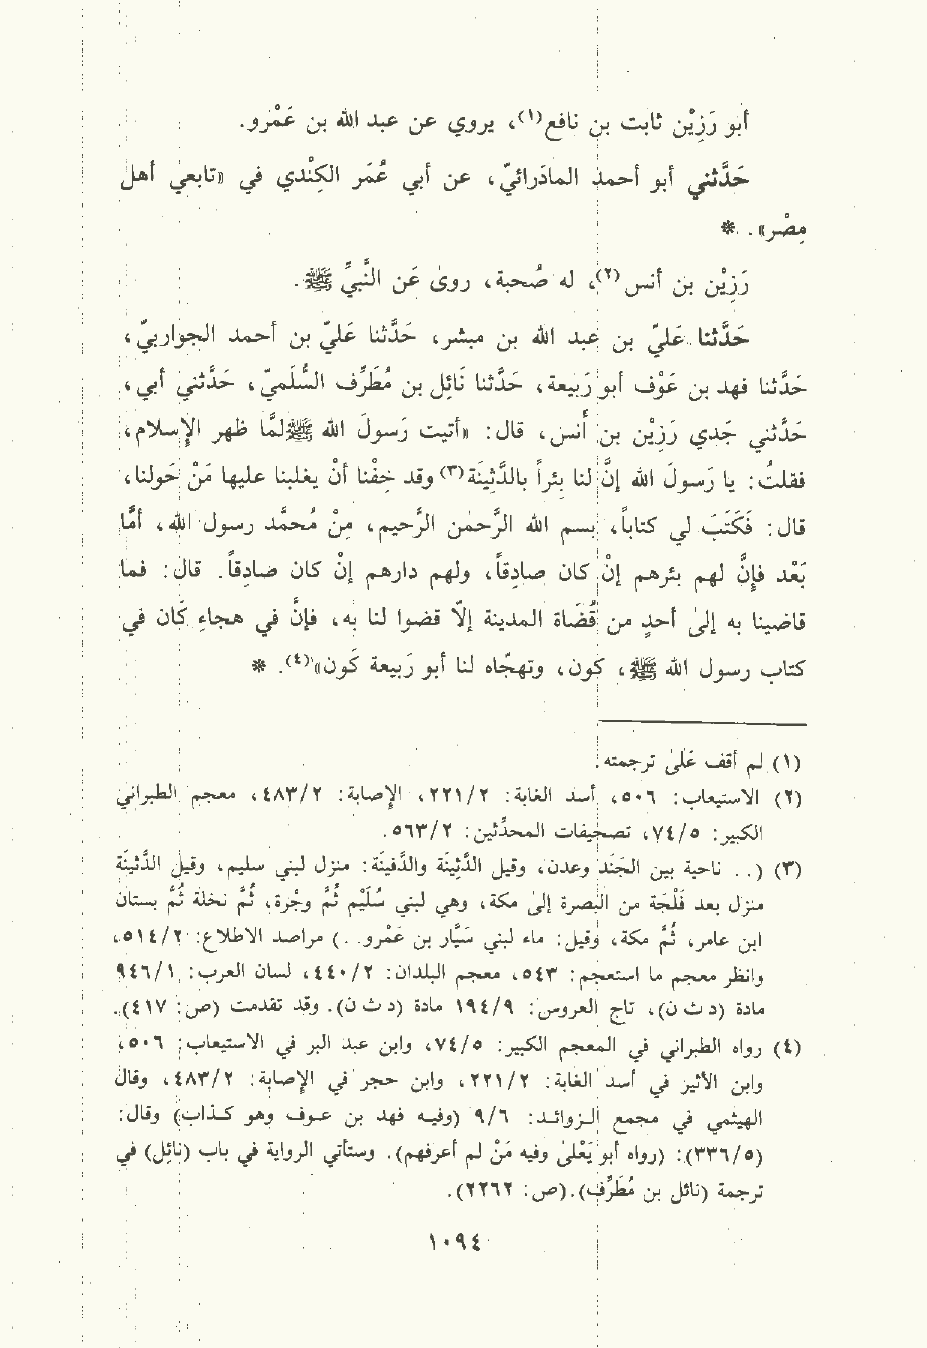 أبو رَزِيْن ثابت بن نافع(١)، يروي عن عبد الله بن عَمْرو.
حَدَّثني أبو أحمد المادَرائيّ، عن أبي عُمَر الكِنْدي في «تابعي أهل
مِصْر». *
رَزِيْن بن أنس(٢)، له صُحبة، روىٰ عَن النَّبيِّ ﷺ.
حَدَّثنا عَليّ بن عبد الله بن مبشر، حَدَّثنا عَليّ بن أحمد الجواربيّ،
حَدَّثنا فهد بن عَوْف أبو رَبيعة، حَدَّثنا نَائِل بن مُطَرِّف السُّلَميّ، حَدَّثني أبي،
حَدَّثني جَدي رَزِيْن بن أنس، قال: «أتيت رَسُولَ الله ﷺ لمَّا ظهر الإسلام،
فقلتُ: يا رَسُولَ الله إنَّ لنا بِئراً بالدَّثِينَة(٣) وقد خِفْنا أنْ يغلبنا عليها مَنْ حَولنا،
قال: فَكَتَبَ لي كتاباً، بسم الله الرَّحمٰن الرَّحيم، مِنْ مُحمَّد رسول الله، أمَّا
بَعْد فإنَّ لهم بئرهم إنْ كان صادِقاً، ولهم دارهم إنْ كان صادِقاً. قال: فما
قاضينا به إلىٰ أحدٍ من قُضَاة المدينة إلَّا قضوا لنا به، فإنَّ في هجاءِ كَان في
كتاب رسول الله ﷺ، كون، وتهجّاه لنا أبو رَبيعة كَون»(٤). *
(١) لم أقف عَلىٰ ترجمته.
(٢) الاستيعاب: ٥٠٦، أسد الغابة: ٢/٢٢١، الإصابة: ٢/٤٨٣، معجم الطبراني
الكبير: ٥/٧٤، تصحيفات المحدِّثين: ٢/٥٦٣.
(٣) (.. ناحية بين الجَنَد وعدن، وقيل الدَّثِينَة والدَّفينَة: منزل لبني سليم، وقيل الدَّثينَة
منزل بعد فَلْجَة من البصرة إلىٰ مكة، وهي لبني سُلَيْم ثُمَّ وجْرة، ثُمَّ نخلة ثُمَّ بستان
ابن عامر، ثُمَّ مكة، وقيل: ماء لبني سَيَّار بن عَمْرو. .) مراصد الاطلاع: ٢/٥١٤،
وانظر معجم ما استعجم: ٥٤٣، معجم البلدان: ٢/٤٤٠، لسان العرب: ١/٩٤٦
مادة (د ث ن)، تاج العروس: ٩/١٩٤ مادة (د ث ن). وقد تقدمت (ص: ٤١٧).
(٤) رواه الطبراني في المعجم الكبير: ٥/٧٤، وابن عبد البر في الاستيعاب: ٥٠٦،
وابن الأثير في أسد الغابة: ٢/٢٢١، وابن حجر في الإصابة: ٢/٤٨٣، وقال
الهيثمي في مجمع الزوائد: ٦/٩ (وفيه فهد بن عوف وهو كذاب) وقال:
(٥/٣٣٦): (رواه أبو يَعْلىٰ وفيه مَنْ لم أعرفهم). وستأتي الرواية في باب (نائِل) في
ترجمة (نائل بن مُطَرِّف).(ص: ٢٢٦٢).
١٠٩٤